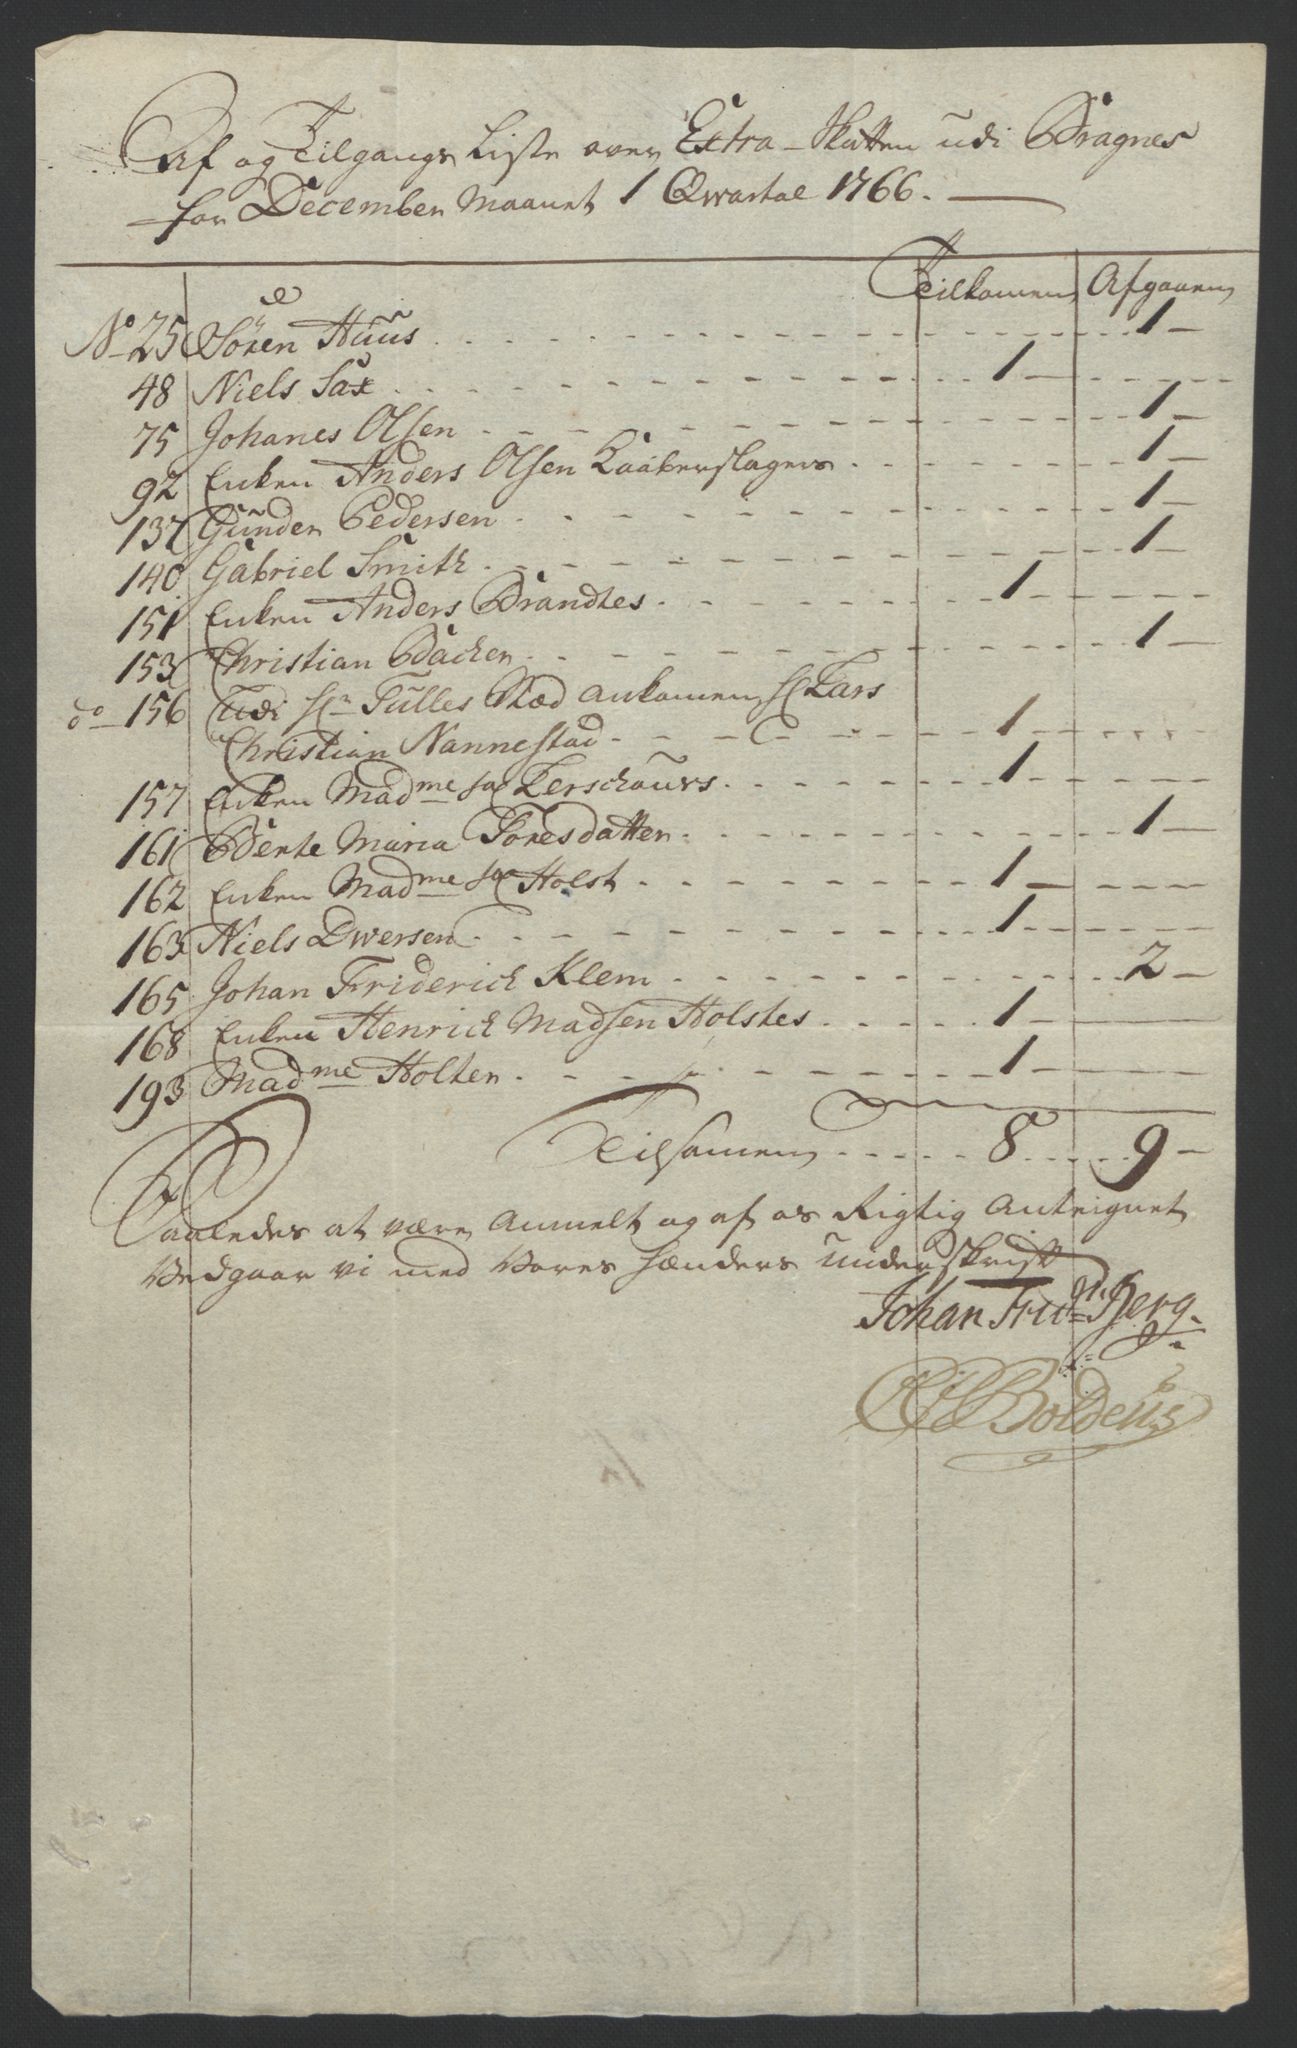 Af og Tilgangs Liste over Extra-Skatten udi Bragnes
for December Maanet 1 Qvartal 1766.
Tilkomen Afgaaen
No 25 Sören Huus 1
48 Niels Sax 1
75 Johanes Olsen 1
92 Enken Anders Olsen Kaaberslagers 1
137 Gunder Pedersen 1
140 Gabriel Smith 1
151 Enken Anders Brandtes 1
153 Christian Backen 1
do 156 udi Hr Tulles Stæd ankomen Hr Lars
Christian Nannestad 1
157 Enken Madme Sal Lerschouvs 1
161 Berte Maria Toresdatter 1
162 Enken Madme Sal Holst 1
163 Niels Dwersen 1
165 Johan Friderich Klem 2
168 Enken Henrich Madsen Holstes 1
193 Madme Holten 1
Tilsamen 8 9
Saaledes at være Anmelt og af os Rigtig Anteignet
Vedgaar vi med Vores Hænders underskrift
Johan Fridr Bierg
Boldeus